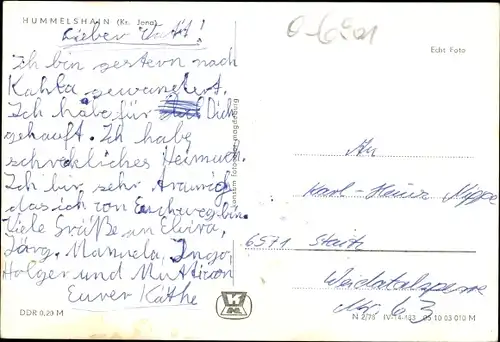 HUMMELSHAIN (Kr. Jena)
Lieber Vati!
Ich bin gestern nach
Kahla gewandert.
Ich habe für Dich
gekauft. Ich habe
schreckliches Heimweh.
Ich bin sehr traurig
das ich von Euch weg bin.
Viele Grüße an Elvira,
Jörg, Manuela, Ingo,
Holger und Mutti von
Eurer Käthe
DDR 0,20 M
Echt Foto
An
Karl-Heinz
6571
Weidatalsperre
Nr. 63
N 2/76 IV-14-483 05 10 03 010 M